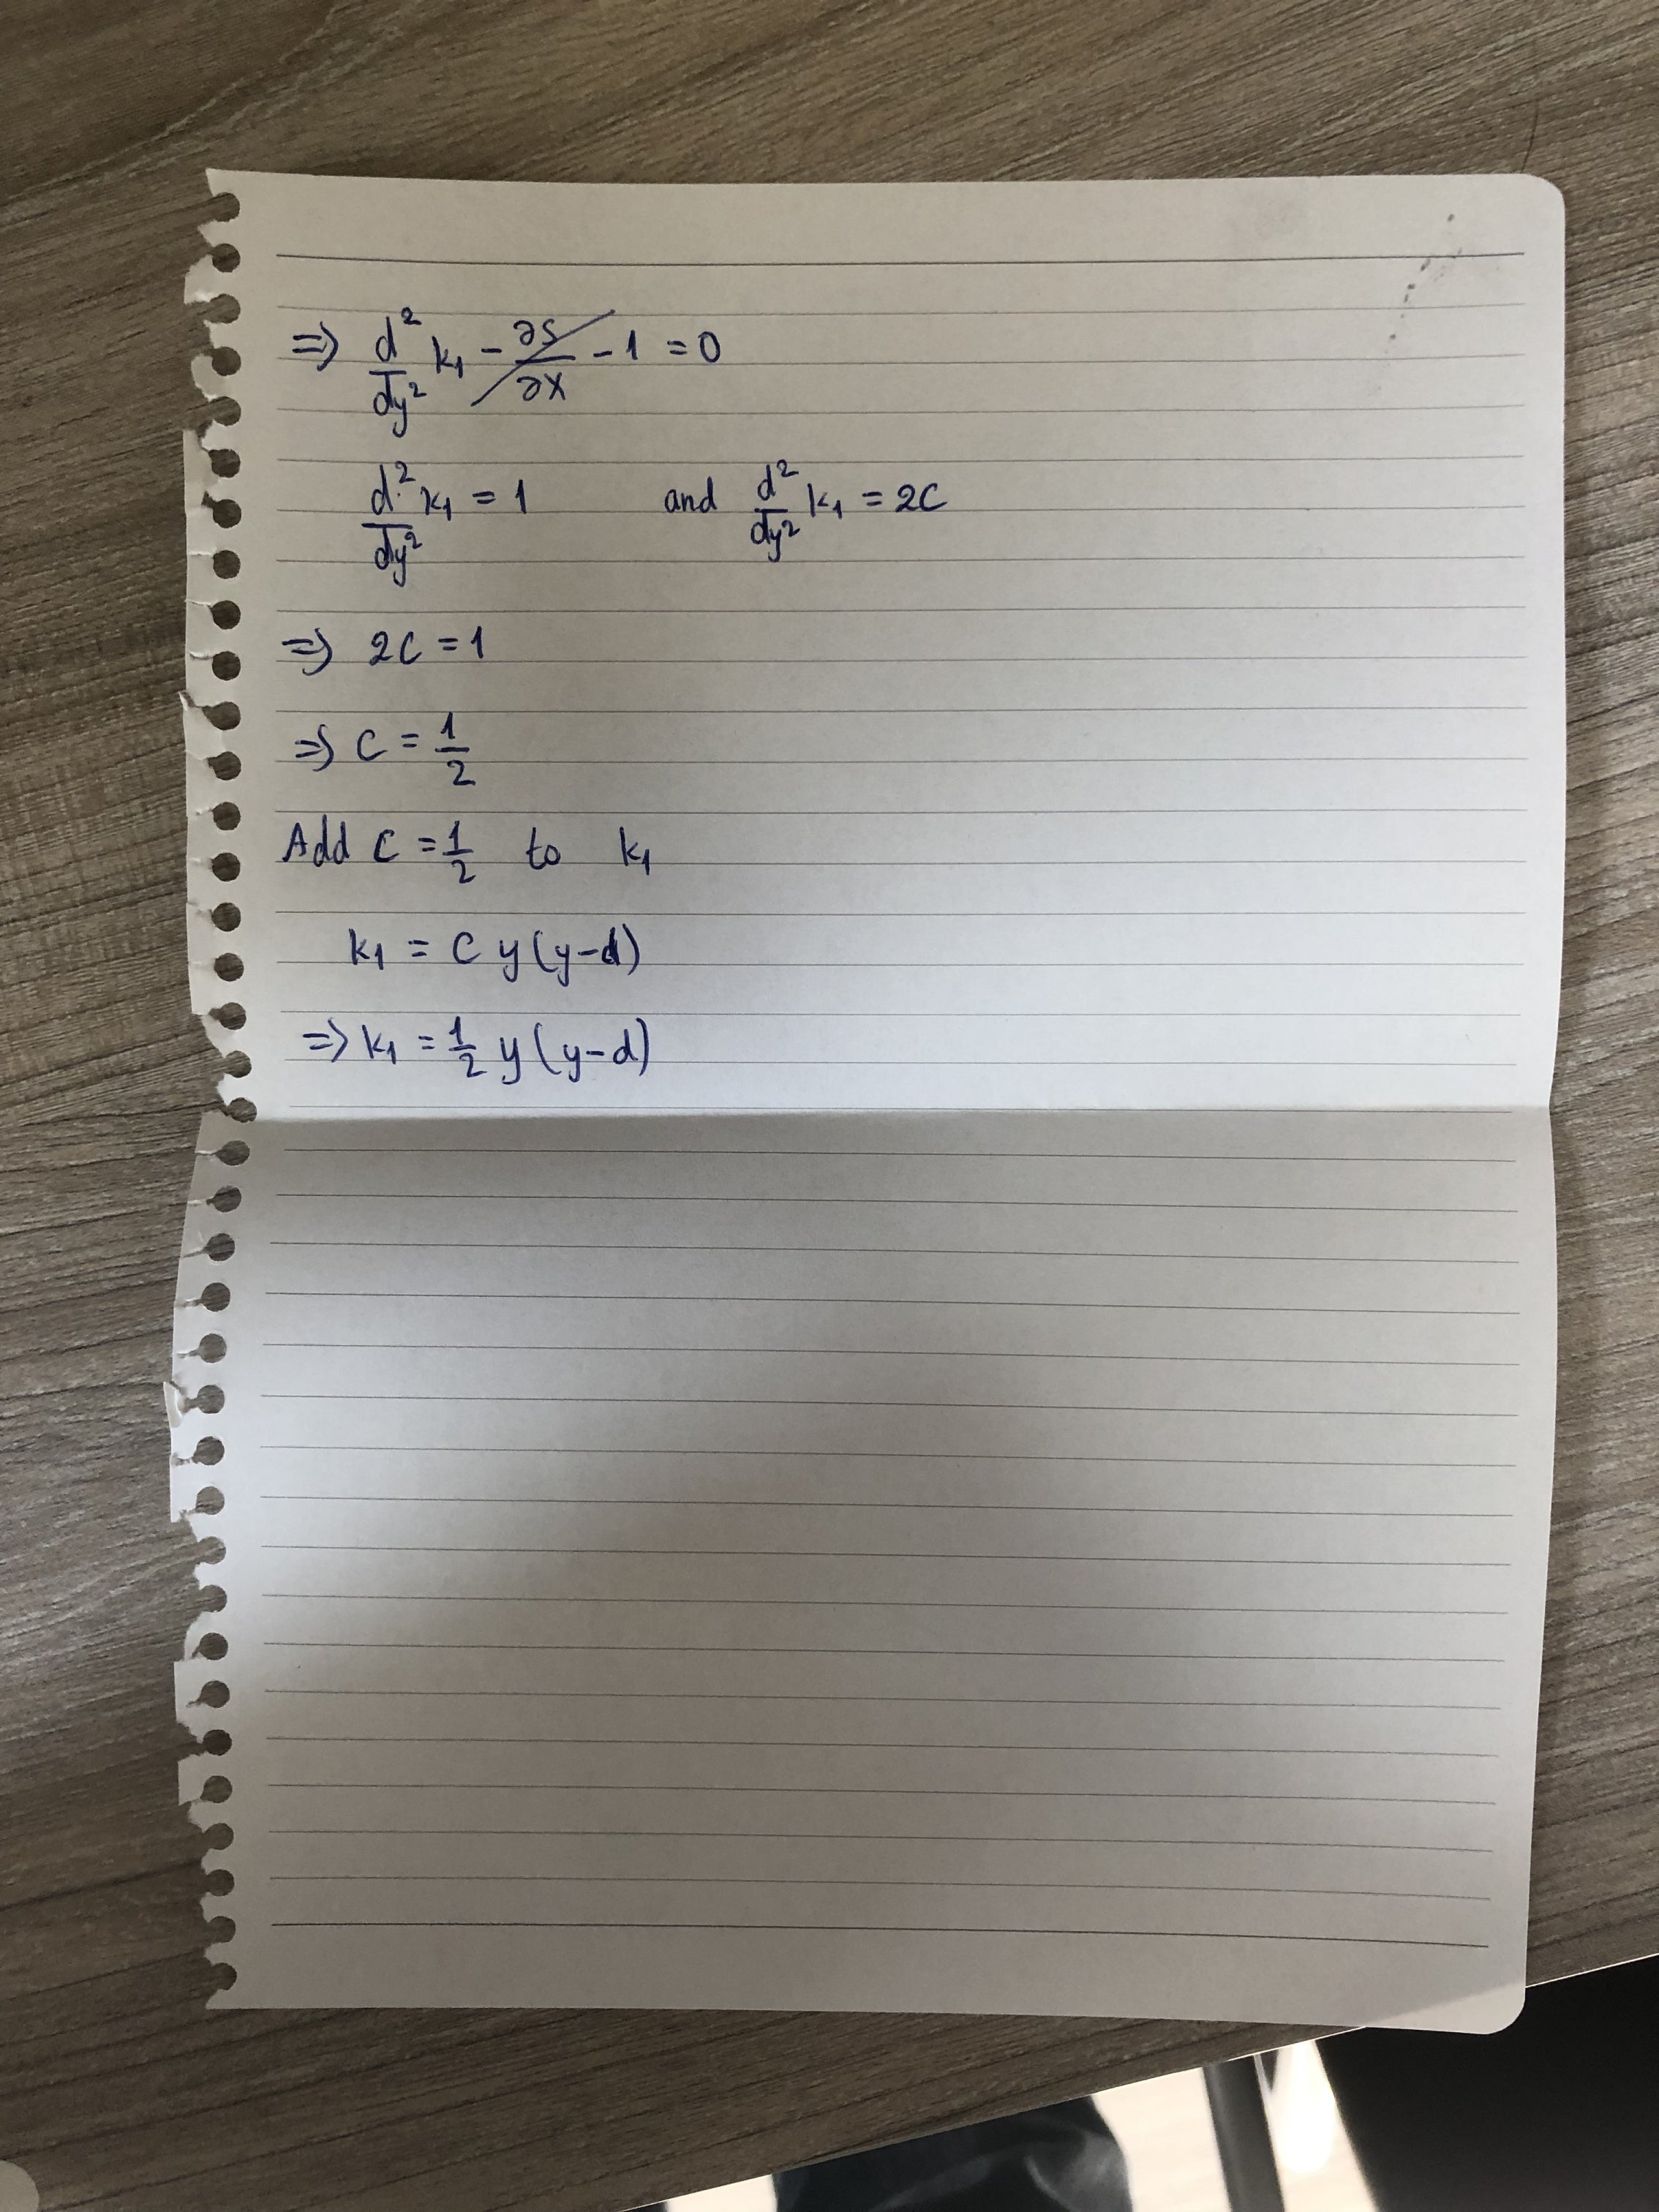 ⇒ d²/dy² k₁ − ∂S/∂x − 1 = 0
d²/dy² k₁ = 1 and d²/dy² k₁ = 2C
⇒ 2C = 1
⇒ C = 1/2
Add C = 1/2 to k₁
k₁ = C y(y−d)
⇒ k₁ = 1/2 y(y−d)